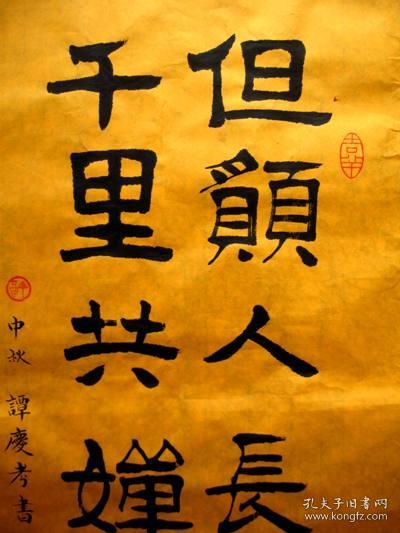 吉羊
但願人長
千里共嬋
中秋 譚慶考書
孔夫子旧书网
www.kongfz.com